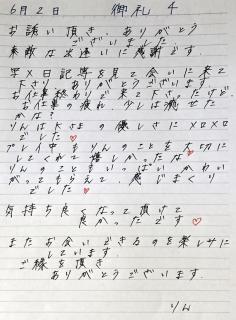 6月2日 御礼 4
お誘い頂き、ありがとう
ございました
素敵な出逢いに感謝です。
写メ日記等を見て会いに来て
下さり ありがとうございます。
お仕事終わりで来てくれたけど、
お仕事の疲れ、少しは癒せた
かな?
りんはKさまの優しさにメロメロ
でした♡
プレイ中もりんのことを大切に
してくれて嬉しかったな♡
りんのこともいっぱいかわい
がってもらえて、感じまくり
でした♡
気持ち良くなって頂けて
良かったです♡
またお会いできるのを楽しみに
しています。
ご縁を頂き
ありがとうございます。
りん